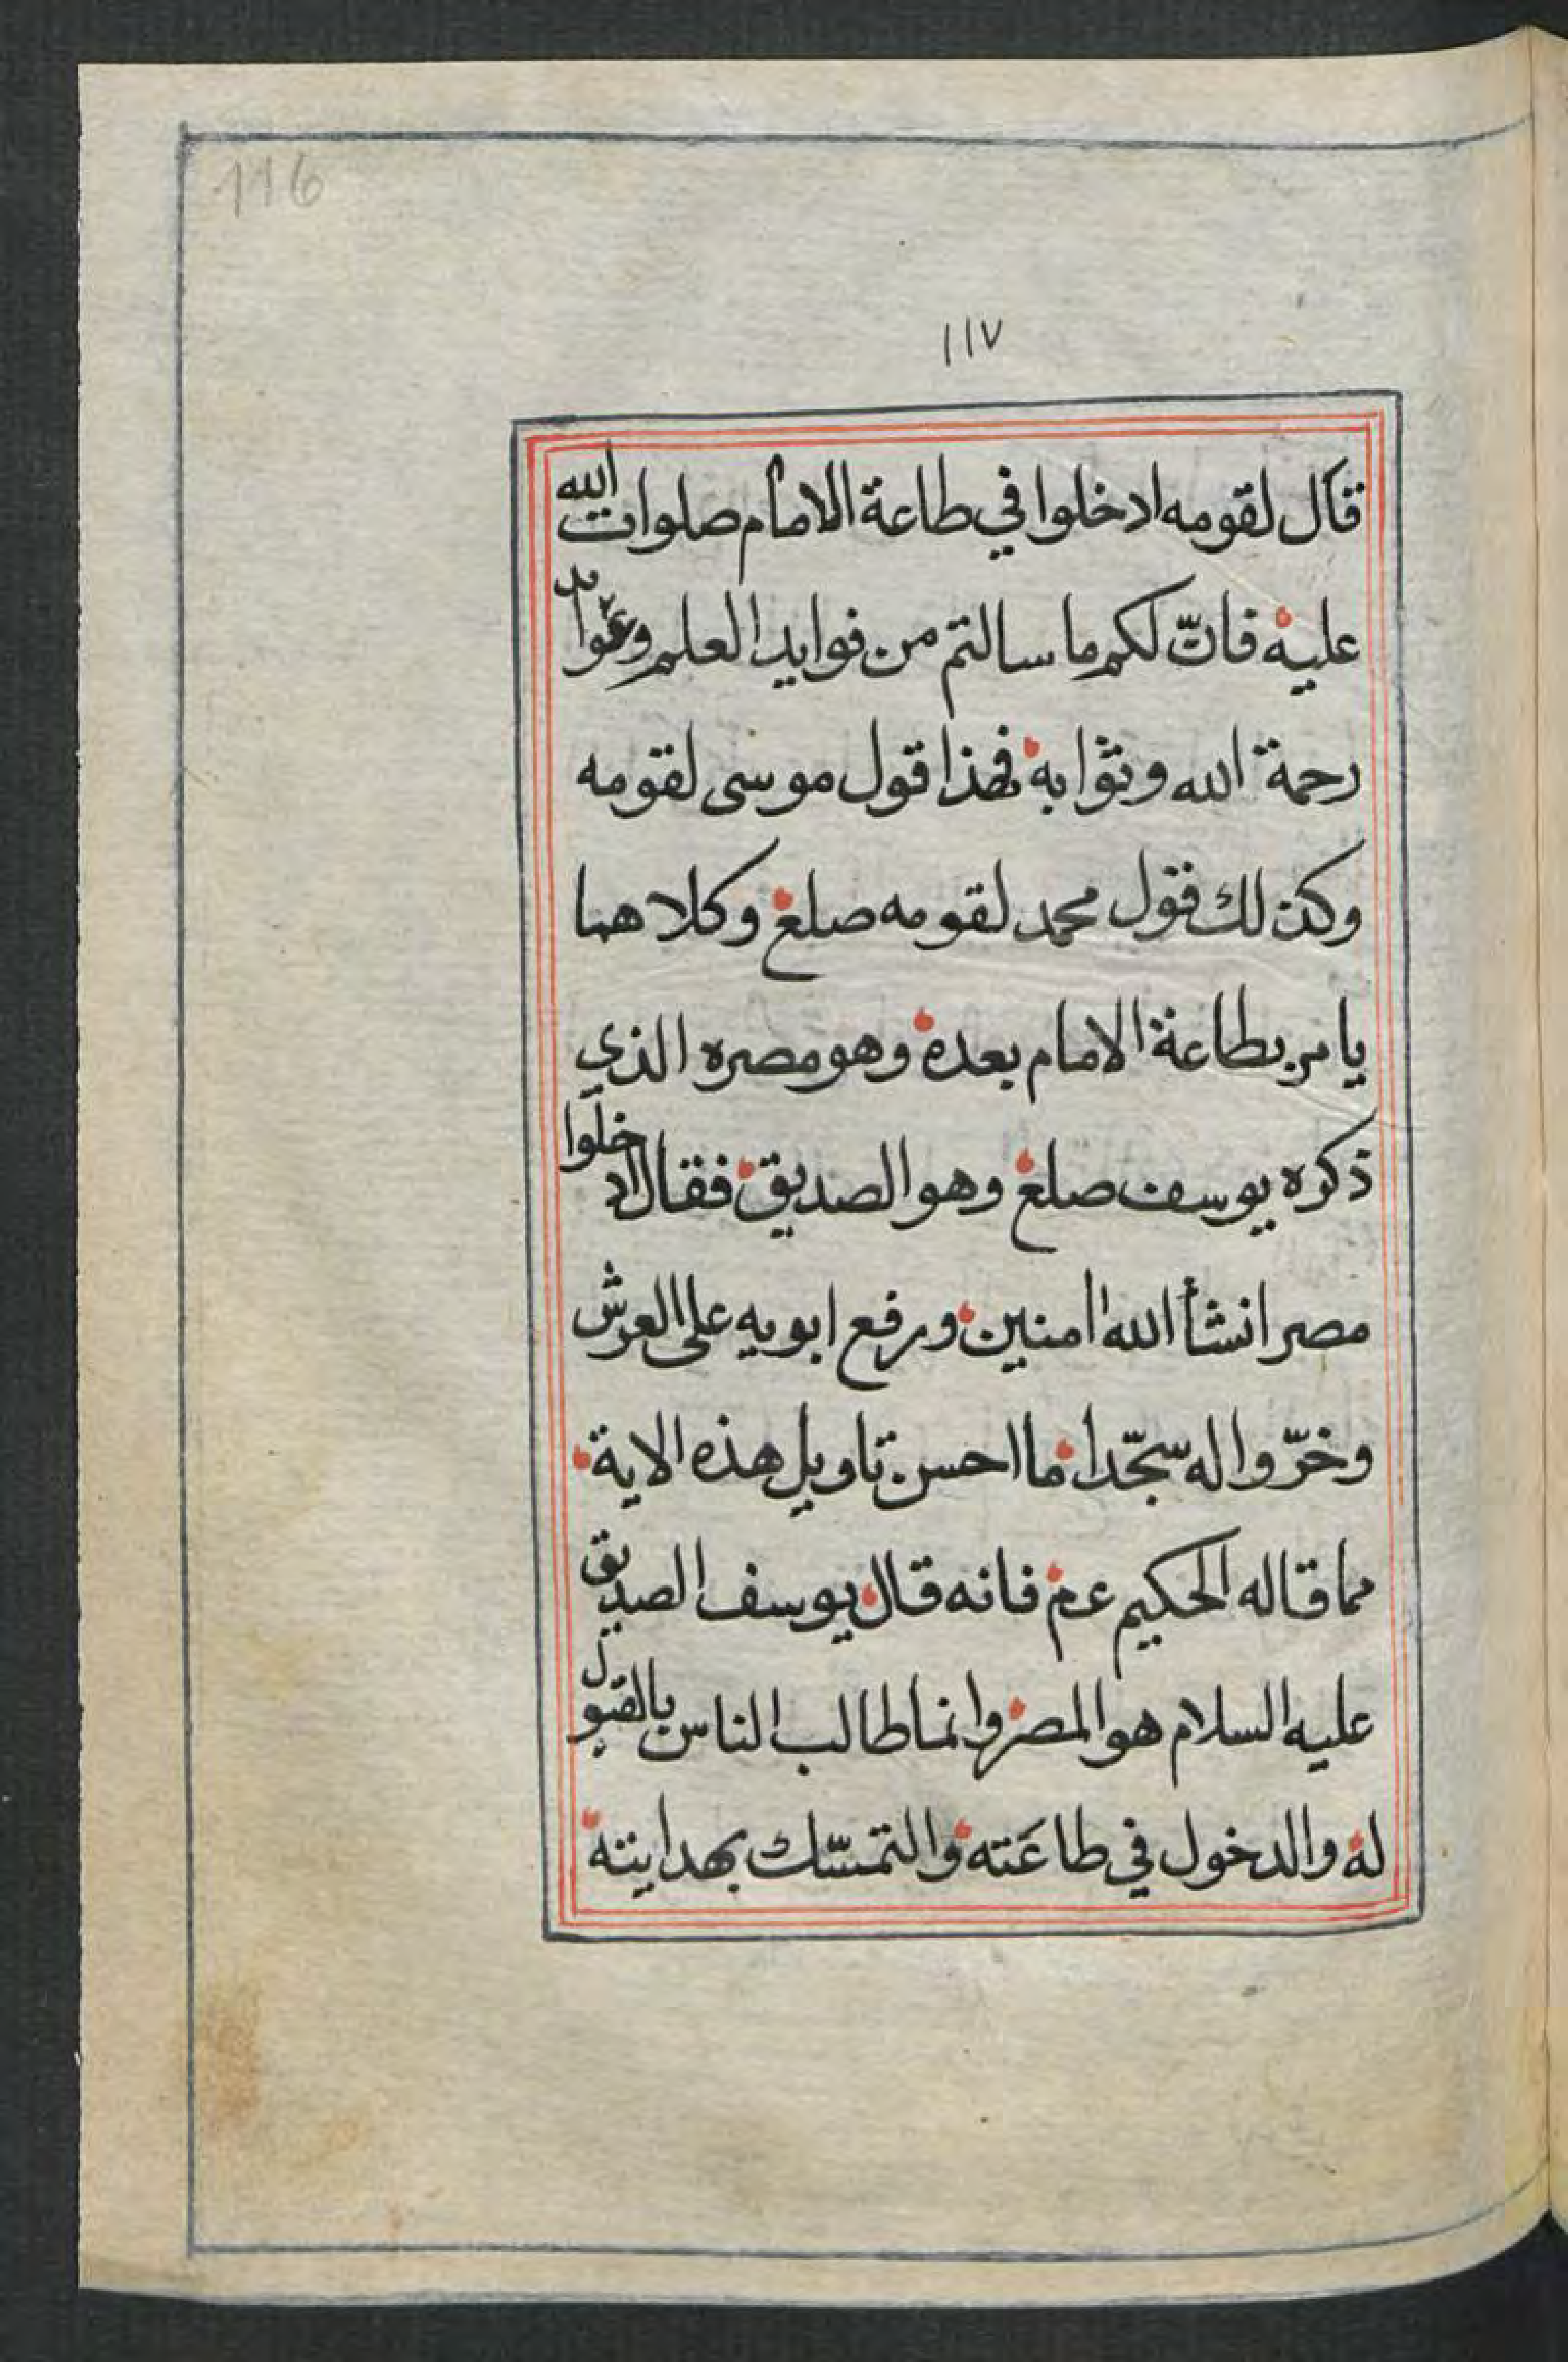 116
١١٧
قال لقومه ادخلوا في طاعة الامام صلوات الله
عليه فانّ لكم ما سالتم من فوايد العلم وعوايد
رحمة الله وثوابه فهذا قول موسى لقومه
وكذلك فقول محمد لقومه صلع وكلاهما
يامر بطاعة الامام بعده وهو مصره الذي
ذكره يوسف صلع وهو الصديق فقال ادخلوا
مصر انشأ الله امنين ورفع ابويه على العرش
وخرّوا له سجّدا ما احسن تاويل هذه الاية
مما قاله الحكيم عم فانه قال يوسف الصديق
عليه السلام هو المصر وانما طالب الناس بالقبول
له والدخول في طاعَته والتمسّك بهدايته